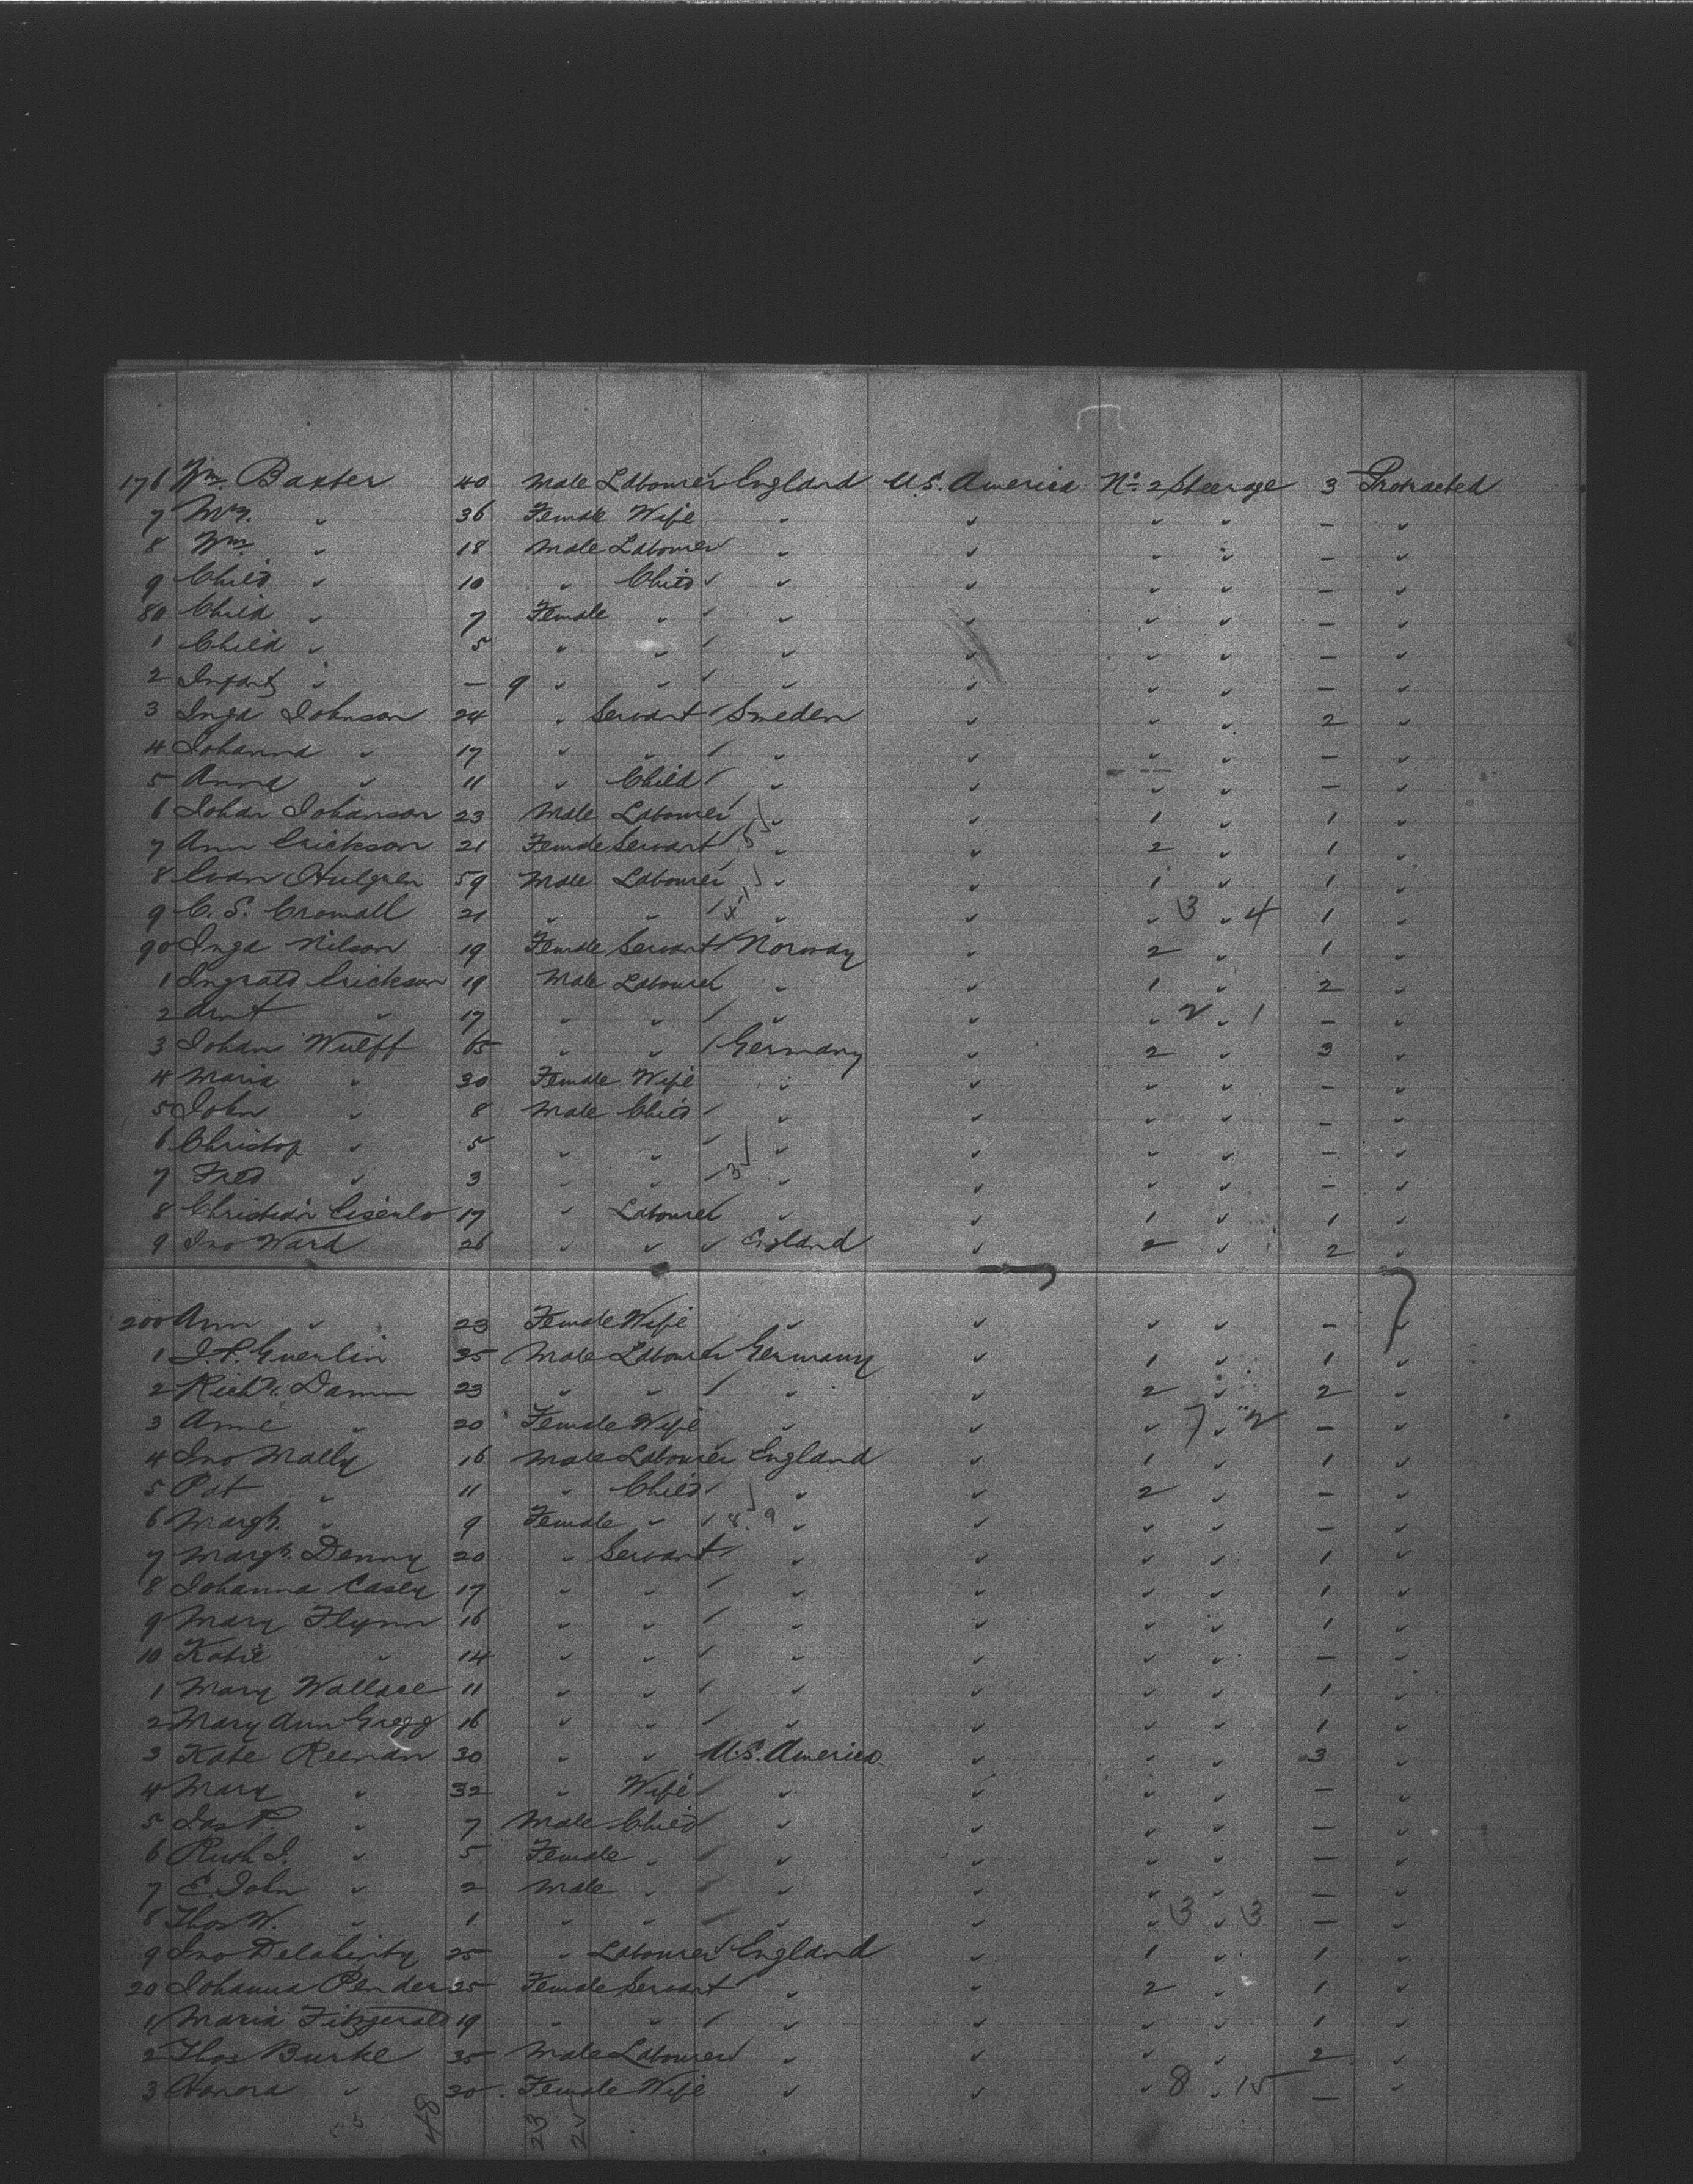 176 Wm. Baxter 40 Male Labourer England U.S. America No. 2 Steerage 3 Protracted
7 Mrs. " 36 Female Wife " " " " — "
8 Wm " 18 Male Labourer " " " " — "
9 Child " 10 " Child " " " " — "
80 Child " 7 Female " " " " " — "
1 Child " 5 " " " " " " — "
2 Infant " — 9 " " " " " " — "
3 Inga Johnson 24 " Servant Sweden " " " 2 "
4 Johanna " 17 " " " " " " — "
5 Anna " 11 " Child " " " " — "
6 Johan Johanson 23 Male Labourer " " 1 " 1 "
7 Ann Erickson 21 Female Servant 5 " " 2 " 1 "
8 Evan Hulgren 59 Male Labourer " " 1 " 1 "
9 C. S. Cromall 21 " " " " " 3 " 4 1 "
90 Inga Nilson 19 Female Servant Norway " 2 " 1 "
1 Ingrald Erickson 19 Male Labourer " " 1 " 2 "
2 Arnt " 17 " " " " " 2 " 1 — "
3 Johan Wulff 65 " " Germany " 2 " 3 "
4 Maria " 30 Female Wife " " " " — "
5 John " 8 Male Child " " " " — "
6 Christop " 5 " " " " " " — "
7 Fred " 3 " " 3 " " " " — "
8 Christian 17 " Labourer " " 1 " 1 "
9 Jno Ward 26 " " England " 2 " 2 "
200 Ann " 23 Female Wife " " " " — "
1 J. P. Guerlin 25 Male Labourer Germany " 1 " 1 "
2 Richd. Damm 23 " " " " 2 " 2 "
3 Anne " 20 Female Wife " " " 7 " 2 — "
4 Jno Mally 16 Male Labourer England " 1 " 1 "
5 Pat " 11 " Child " " 2 " — "
6 Margt. " 9 Female " 8. 9 " " " " — "
7 Margt. Denny 20 " Servant " " " " 1 "
8 Johanna Casey 17 " " " " " " 1 "
9 Mary Flynn 16 " " " " " " 1 "
10 Katie " 14 " " " " " " — "
1 Mary Wallace 11 " " " " " " 1 "
2 Mary Ann Gregg 16 " " " " " " 1 "
3 Kate Reenan 30 " " U.S. America " " " 3 "
4 Mary " 32 " Wife " " " " — "
5 Jas P. " 7 Male Child " " " " — "
6 Ruth J. " 5 Female " " " " " — "
7 E. John " 2 Male " " " " " — "
8 Thos W. " 1 " " " " " 3 " 3 — "
9 Jno Delahinty 25 " Labourer England " 1 " 1 "
20 Johanna Pender 25 Female Servant " " 2 " 1 "
1 Maria Fitzgerald 19 " " " " " " 1 "
2 Thos Burke 35 Male Labourer " " " " 2 "
3 Honora " 30 Female Wife " " " 8 " 15 — "
48 23 25